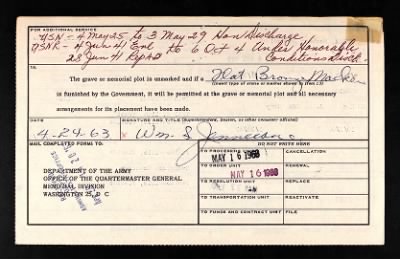 FOR ADDITIONAL SERVICE
USN - 4 May 25 to 3 May 29 Hon Discharge
USNR - 4 Jun 41 Enl to 6 Oct 4 Under Honorable
28 Jun 41 Conditions Disch.
TO:
The grave or memorial plot is unmarked and if a Flat Bronze Marker
is furnished by the Government, it will be permitted at the grave or memorial plot and all necessary
arrangements for its placement have been made.
DATE SIGNATURE AND TITLE
4-24-63 x Wm S
MAIL COMPLETED FORMS TO: DO NOT WRITE HERE
DEPARTMENT OF THE ARMY
OFFICE OF THE QUARTERMASTER GENERAL
MEMORIAL DIVISION
WASHINGTON 25, D C
TO PROCESSING CANCELLATION
MAY 16 1963
TO ORDER UNIT RENEWAL
MAY 16 1963
TO RESOLUTION UNIT REPLACE
TO TRANSPORTATION UNIT REACTIVATE
TO FUNDS AND CONTRACT UNIT FILE